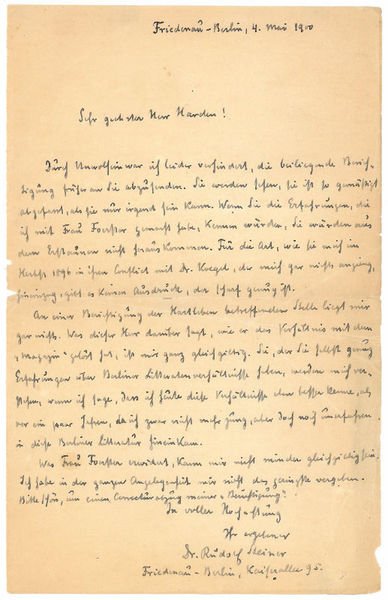 Friedenau-Berlin, 4. Mai 1900
Sehr geehrter Herr Harden!
Durch Unwohlsein war ich leider verhindert, die beiliegende Berich-
tigung früher an Sie abzusenden. Sie werden sehen, sie ist so gemäßigt
abgefasst, als sie nur irgend sein kann. Wenn Sie die Erfahrungen, die
ich mit Frau Foerster gemacht habe, kennen würden, Sie würden aus
dem Erstaunen nicht herauskommen. Für die Art, wie sie mich im
Herbst 1896 in ihren Conflict mit Dr. Koegel, der mich gar nichts anging,
hineinzog, gibt es keinen Ausdruck, der scharf genug ist.
An einer Berichtigung der Hartleben betreffenden Stelle liegt mir
gar nichts. Was dieser Herr darüber sagt, wie er das Verhältnis mit dem
„Magazin" gelöst hat, ist mir ganz gleichgiltig. Sie, der Sie selbst genug
Erfahrungen über Berliner Litteraturverhältnisse haben, werden mich ver-
stehen, wenn ich sage, dass ich heute diese Verhältnisse eben besser kenne, als
vor ein paar Jahren, da ich zwar nicht mehr jung, aber doch noch unerfahren
in diese Berliner Litteratur hineinkam.
Was Frau Foerster erwidert, kann mir nicht minder gleichgiltig sein.
Ich habe in der ganzen Angelegenheit mir nicht das geringste vergeben.
Bitte schön, um einen Correcturabzug meiner „Berichtigung".
In voller Hochachtung
Ihr ergebener
Dr. Rudolf Steiner
Friedenau-Berlin, Kaiserallee 95.